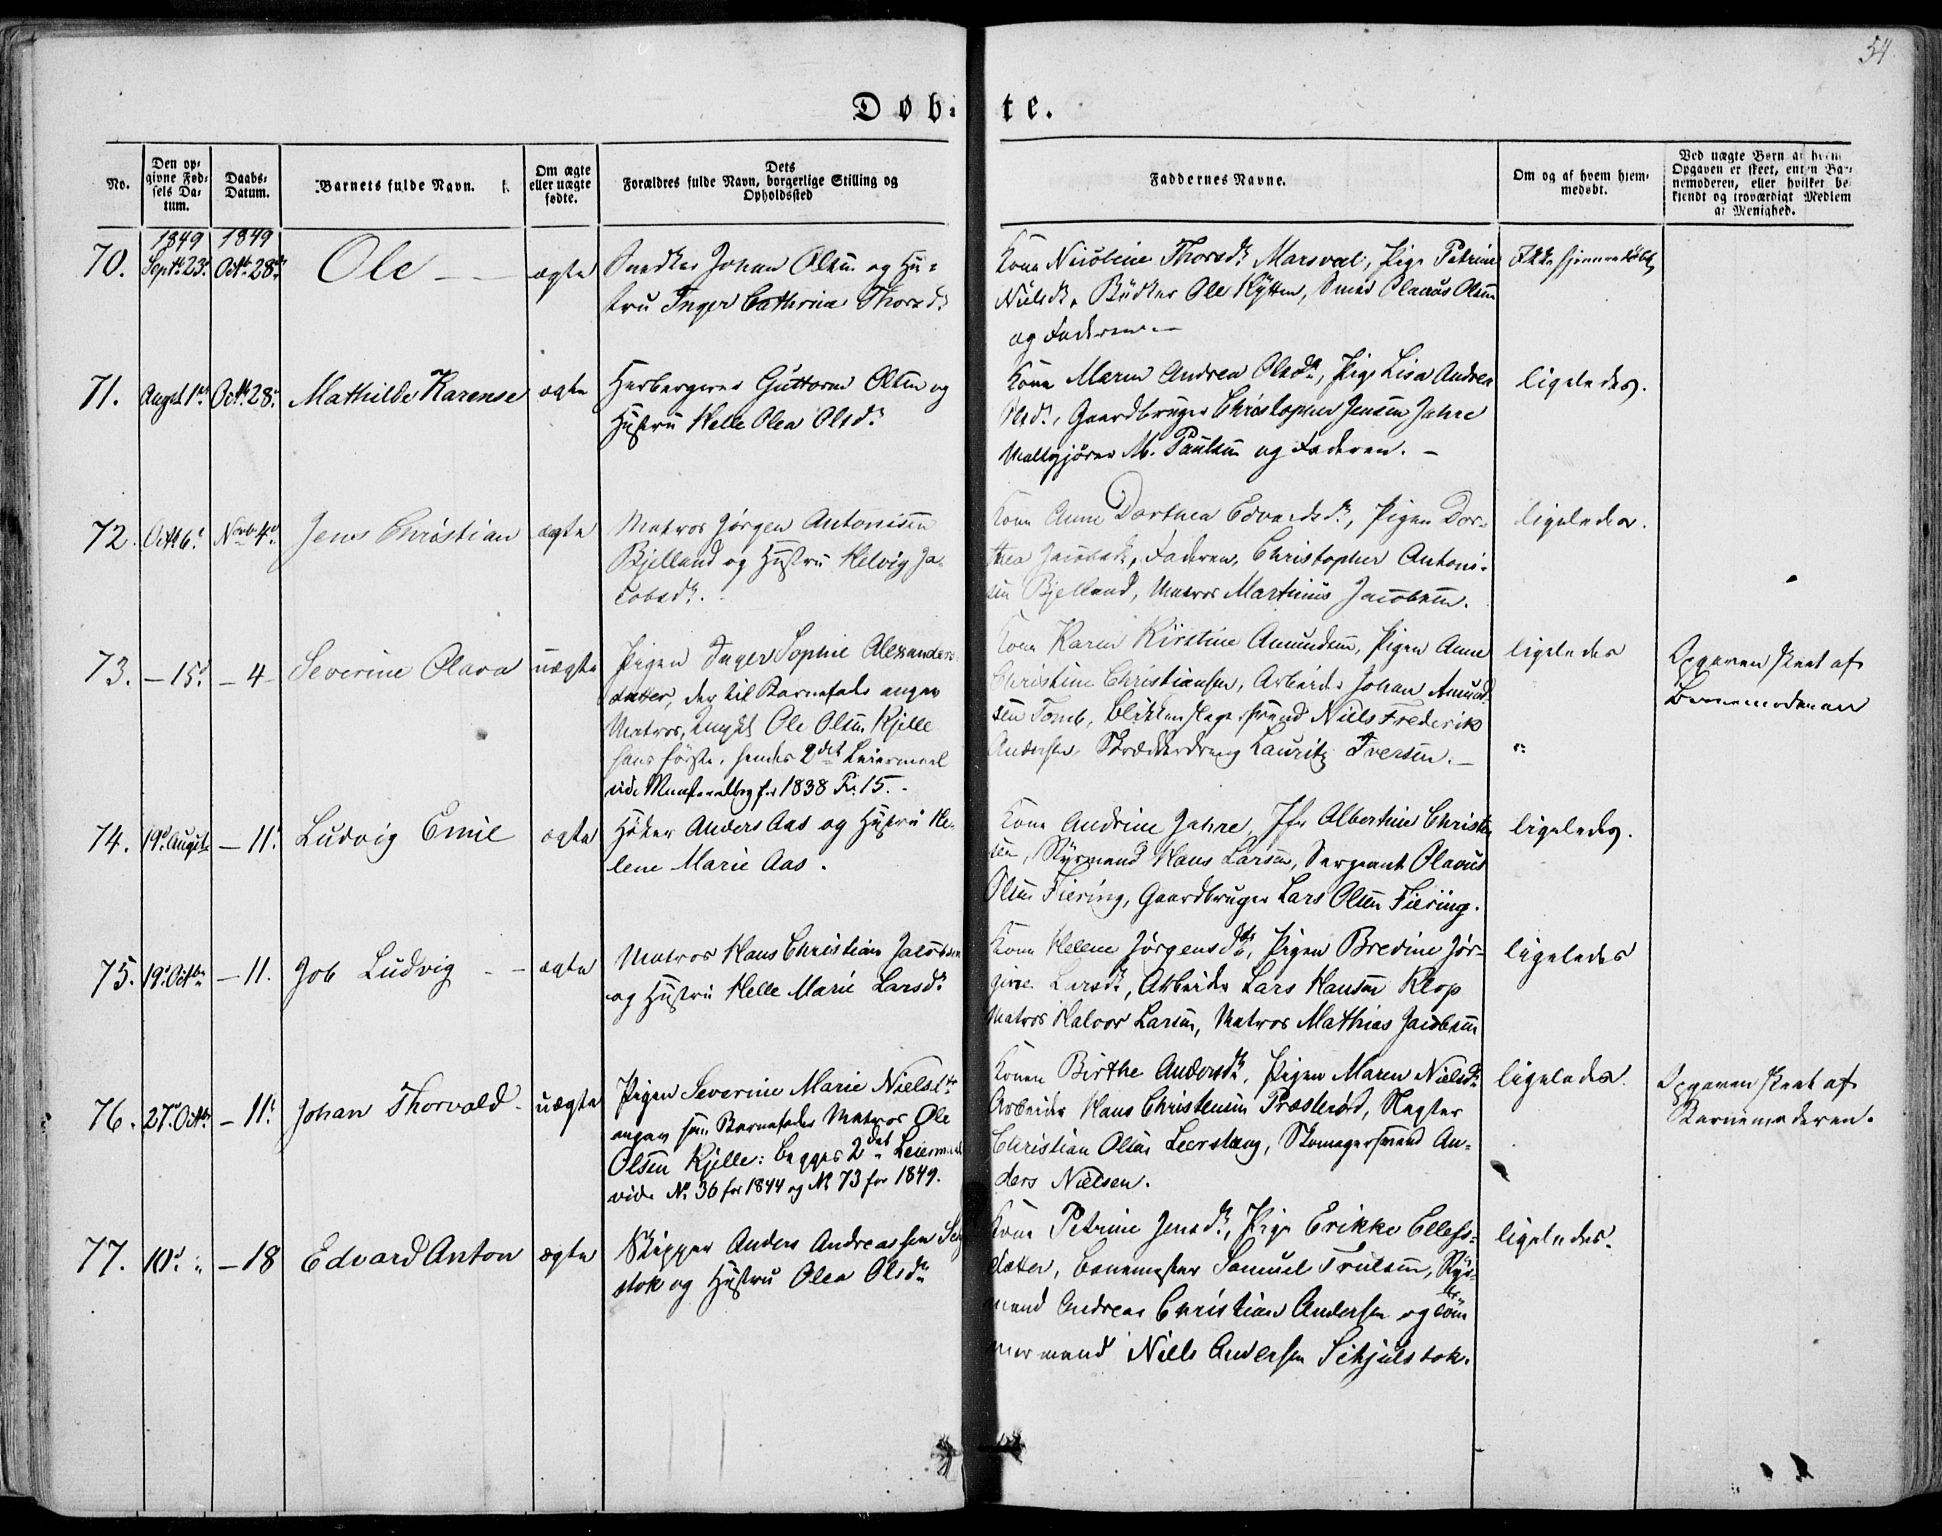 54.
Døb-te.
No.
Den op-
givne Fød-
sels Da-
tum.
Daabs-
Datum.
Barnets fulde Navn.
Om ægte
eller uægte
fødte.
Dets
Forældres fulde Navn, borgerlige Stilling og
Opholdssted
Faddernes Navne.
Om og af hvem hjem-
medøbt.
Ved uægte Børn af hvem
Opgaven er skeet, enten Bar-
nemoderen, eller hvilket be-
kjendt og troværdigt Medlem
af Menighed.
1849 1849
70. Septb 23. Octb 28. Ole ægte
Snedker Johan Olsen og Hu-
stru Inger Cathrina Thorsd.
Kone Nicoline Thorsd. Marsvel, Pige Petrine
Nielsd., Bødker Ole Kytten, Smed Olaus Olsen
og Faderen.
Ikke hjemmedøbt
71. Augst 1 Octb 28. Mathilde Karense ægte
Guttorm Olsen og
Hustru Helle Olea Olsd.
Kone Maren Andrea Olsd., Pige Lisa Andrea
Olsd., Gaardbruger Christopher Jensen Jahre
Maltgjører M. Paulsen og Faderen. –
ligeledes.
72. Octb 6. Novbr 4. Jens Christian ægte
Matros Jørgen Antonisen
Bjelland og Hustru Helvig Ja-
cobsd.
Kone Anne Dorthea Edvardsd., Pigen Dor-
thea Jacobsd., Faderen, Christopher Antoni-
sen Bjelland, Matros Martinus Jacobsen.
ligeledes.
73. – 15. – 4 Severine Olava uægte
Pigen Inger Sophie Alexanders-
datter, der til Barnefader angav
Matros, Ole Olsen Kjelle
hans første, hendes 2det Leiermaal
vide for 1838 15.
Kone Karen Kirstine Amundsen, Pigen Anne
Christine Christiansen, Arbeider Johan Amund-
sen Tomb, Blikkenslagersvend Niels Frederik
Andersen Skrædderdreng Lauritz Iversen. –
ligeledes
Opgaven skeet af
Barnemoderen
74. 19. August – 11. Ludvig Emil ægte
Høker Anders Aas og Hustru He-
lene Marie Aas.
Kone Andrine Jahre, Jfr Albertine Christen-
sen, Styrmand Hans Larsen, Sergeant Olavus
Olsen Fiering, Gaardbruger Lars Olsen Fiering.
ligeledes.
75. 19. Octbr – 11. Job Ludvig – – ægte
Matros Hans Christian Jacobsen
og Hustru Helle Marie Larsd.
Kone Helene Jørgensd., Pigen Bredine Jør-
gine Larsd., Arbeider Lars Hansen Klop
Matros Halvor Larsen, Matros Mathias Jacobsen
ligeledes
76. 27. Octbr – 11. Johan Thorvald uægte
Pigen Severine Marie Nielsd.
angav som Barnefader Matros Ole
Olsen Kjelle: begges 2det Leiermaal
vide No 36 for 1844 og No 73 for 1849.
Konen Birthe Andersd., Pigen Maren Nielsd.
Arbeider Hans Christensen Præsterød, Slagter
Christian Olsen Leerstang, Skomagersvend An-
ders Nielsen.
ligeledes.
Opgaven skeet af
Barnemoderen.
77. 10. " – 18 Edvard Anton ægte
Skipper Anders Andreassen
stok og Hustru Olea Olsd.
Kone Petrine Jensd., Pige Erikke Ellefs-
datter, Samuel Trulsen, Styr-
mand Andreas Christian Andersen og Tøm-
mermand Niels Andersen Sehjulstok.
ligeledes.